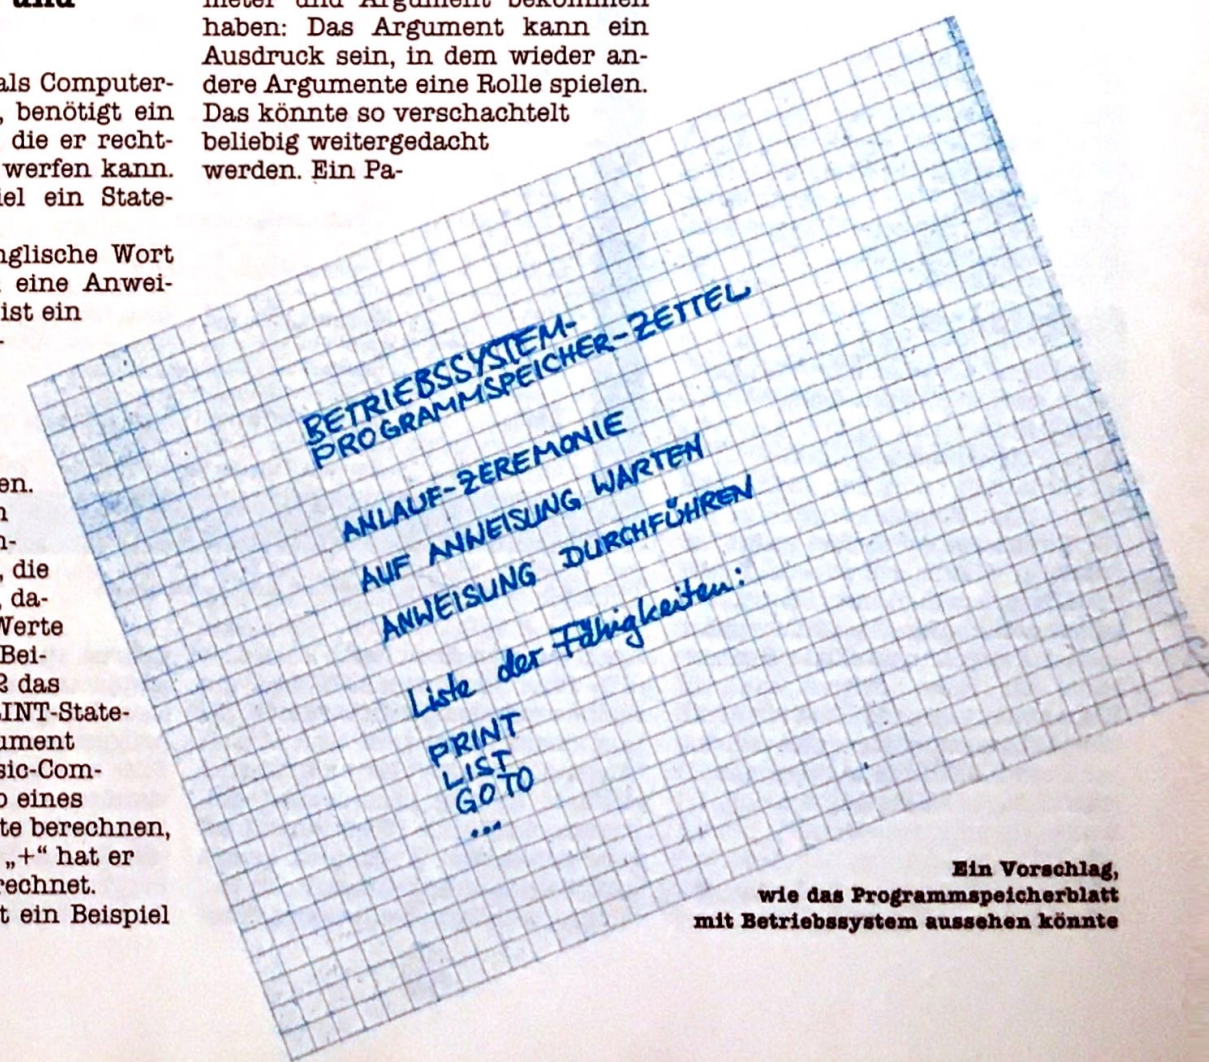 und
als Computer-
, benötigt ein
die er recht-
werfen kann.
iel ein State-
nglische Wort
eine Anwei-
ist ein
-
en.
n
n-
, die
, da-
Werte
Bei-
2 das
INT-State-
ument
sic-Com-
o eines
te berechnen,
„+“ hat er
rechnet.
t ein Beispiel
meter und Argument bekommen
haben: Das Argument kann ein
Ausdruck sein, in dem wieder an-
dere Argumente eine Rolle spielen.
Das könnte so verschachtelt
beliebig weitergedacht
werden. Ein Pa-
BETRIEBSSYSTEM-
PROGRAMMSPEICHER-ZETTEL
ANLAUF-ZEREMONIE
AUF ANWEISUNG WARTEN
ANWEISUNG DURCHFÜHREN
Liste der Fähigkeiten:
PRINT
LIST
GOTO
...
Ein Vorschlag,
wie das Programmspeicherblatt
mit Betriebssystem aussehen könnte